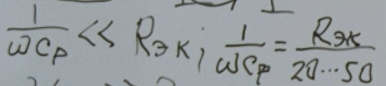 1/ωCр << Rэк; 1/ωCр = Rэк/20...50